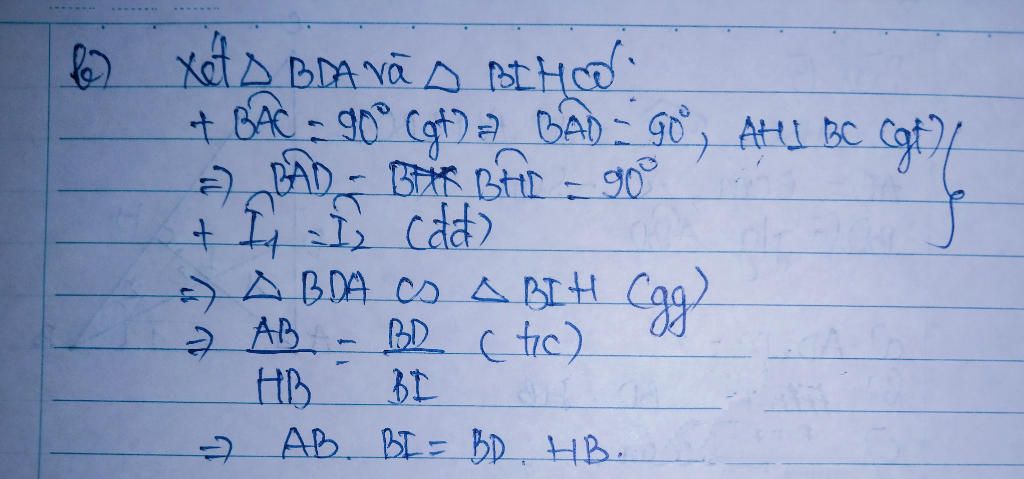 b) Xét △ BDA và △ BIH có:
+ BAC = 90° (gt) ⇒ BAD = 90°, AH⊥ BC (gt)
⇒ BAD = BHI = 90°
+ I₁ = I₂ (đđ)
⇒ △ BDA ∽ △ BIH (gg)
⇒ AB/HB = BD/BI (t/c)
⇒ AB. BI = BD. HB.